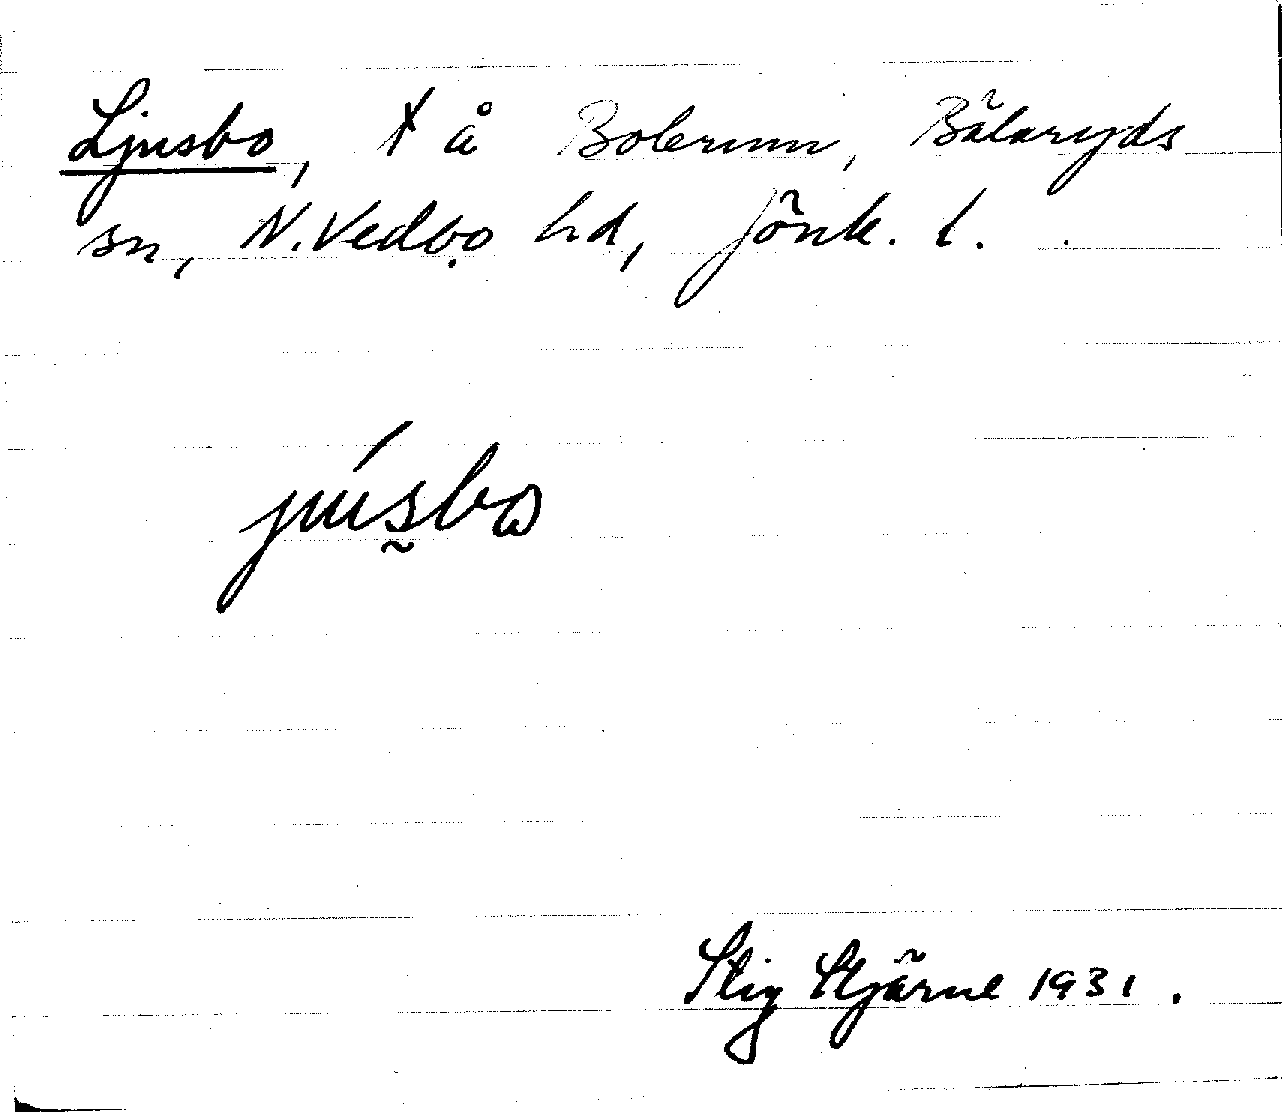 Ljusbo, t å Bolerum, Bälaryds
sn, N. Vedbo hd, Jönk. l.
júsbo
Stig Stjärne 1931.